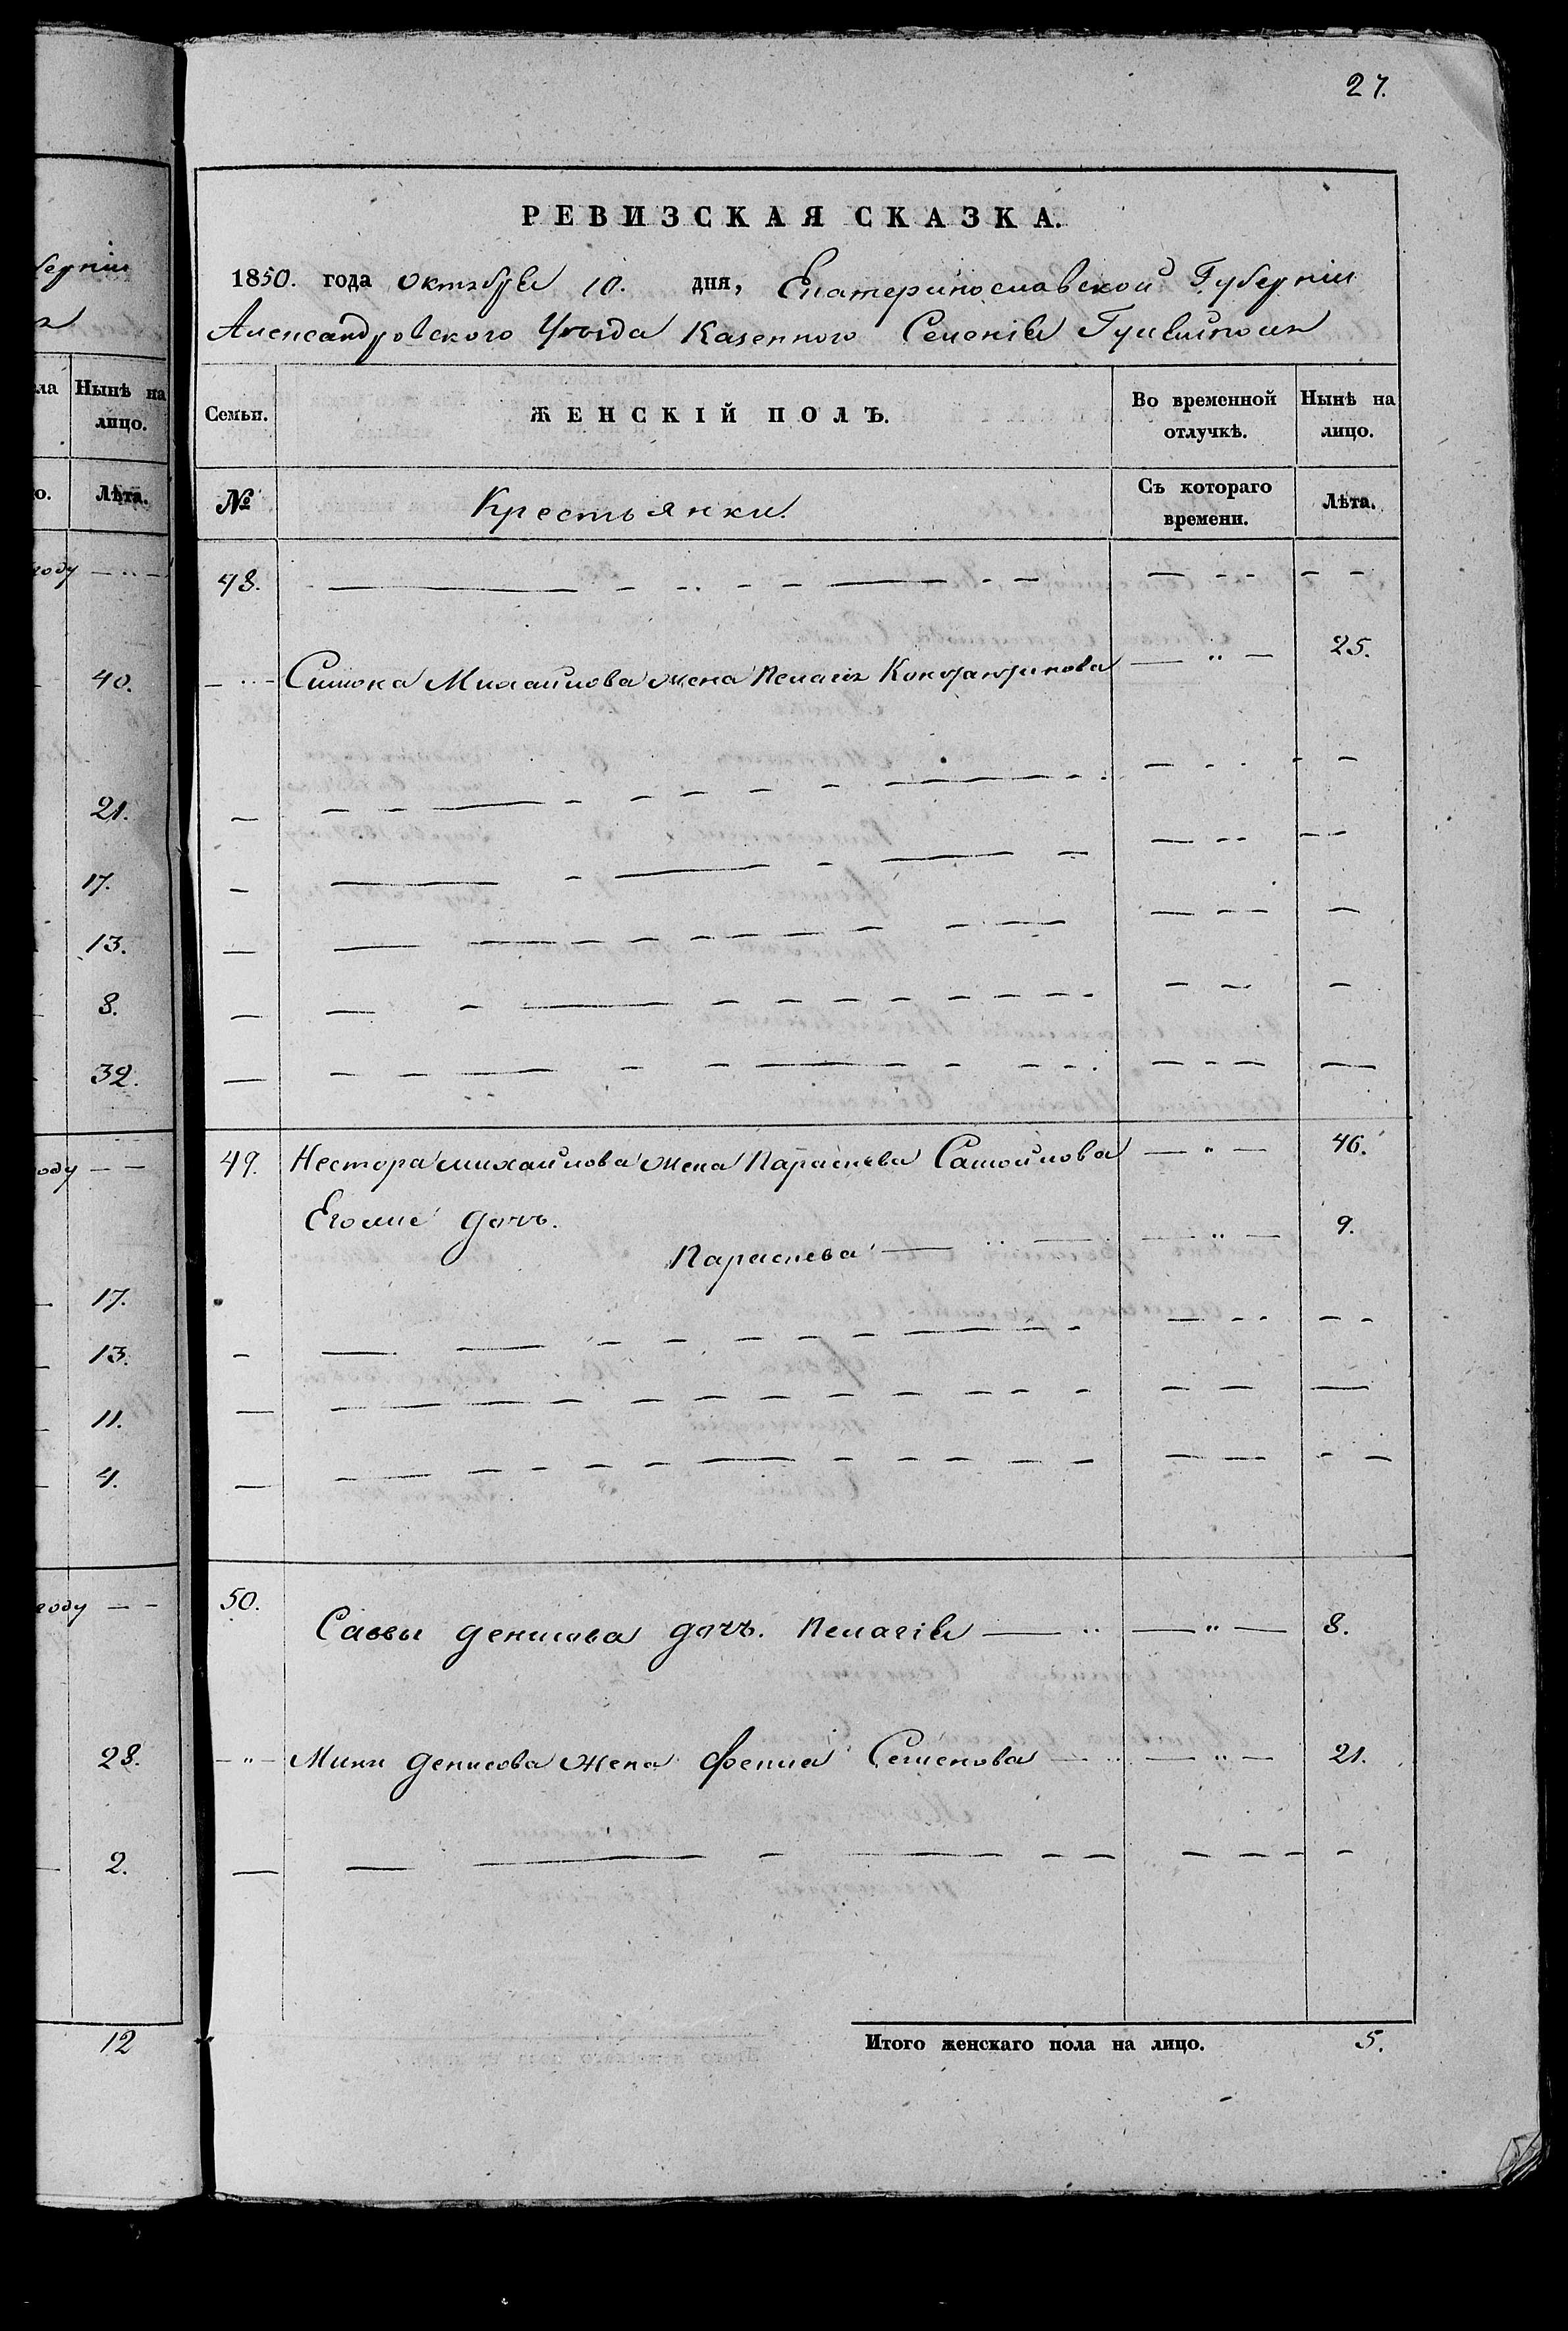 27.
РЕВИЗСКАЯ СКАЗКА.
1850. года октября 10. дня, Екатеринославской Губерніи
Александровского Уѣзда Казенного Селенія Гуляйполя
Семьи. ЖЕНСКІЙ ПОЛЪ. Во временной отлучкѣ. Нынѣ на лицо.
№ Крестьянки. Съ котораго времени. Лѣта.
48.
Симона Михайлова жена Пелагія Кондратикова 25.
49. Нестора михайлова жена Параскева Самойлова 46.
Егоже дочь.
Параскева 9.
50.
Саввы денисова дочъ. Пелагія 8.
Мины денисова жена Фенна Семенова 21.
Итого женскаго пола на лицо. 5.
берніи
ла Нынѣ на лицо.
о. Лѣта.
году
40.
21.
17.
13.
8.
32.
оду
17.
13.
11.
4.
году
28.
2.
12